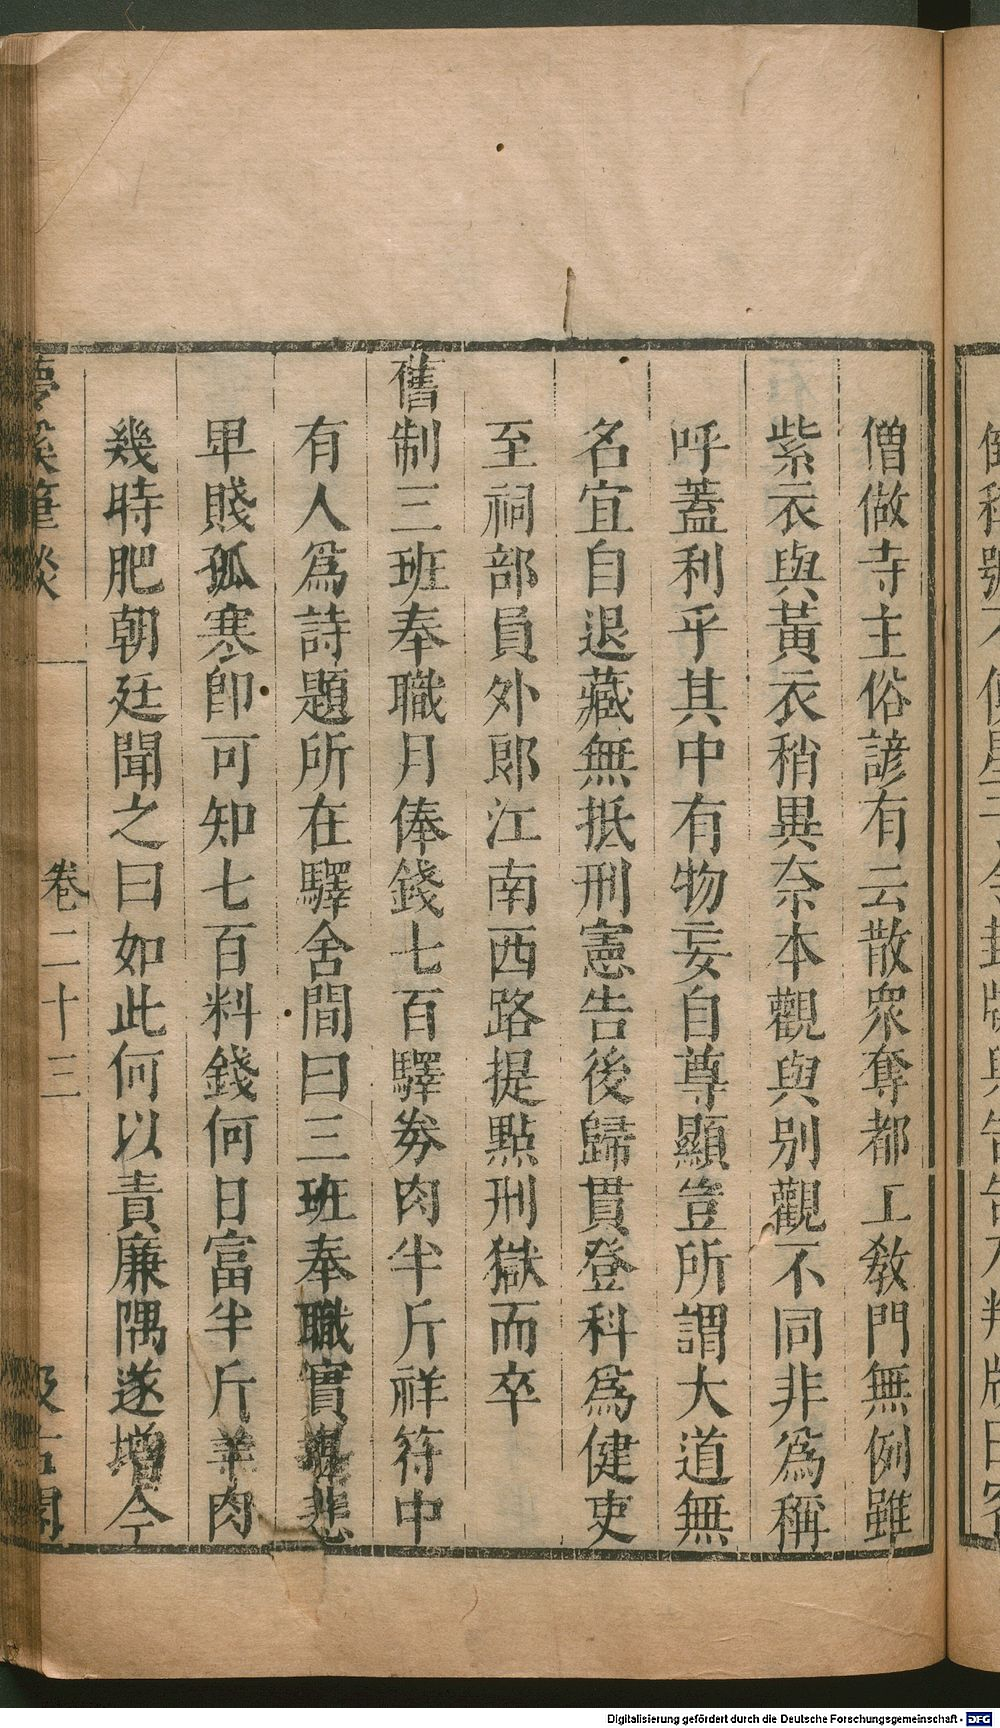 僧做寺主俗諺有云散衆奪都工敎門無例雖
紫衣與黃衣稍異奈本觀與別觀不同非爲稱
呼蓋利乎其中有物妄自尊顯豈所謂大道無
名宜自退藏無抵刑憲告後歸貫登科爲健吏
至祠部員外郎江南西路提點刑獄而卒
舊制三班奉職月俸錢七百驛劵肉半斤祥符中
有人爲詩題所在驛舍間曰三班奉職實堪悲
卑賤孤寒卽可知七百料錢何日富半斤羊肉
幾時肥朝廷聞之曰如此何以責廉隅遂增今
夢溪筆談 卷二十三 汲古閣
Digitalisierung gefördert durch die Deutsche Forschungsgemeinschaft - DFG